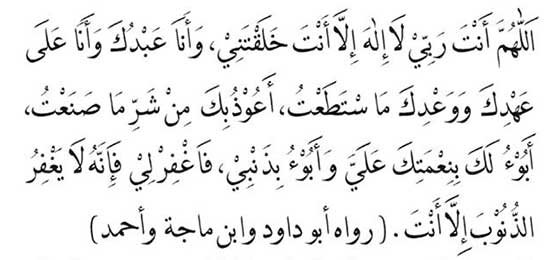 اَللّٰهُمَّ أَنْتَ رَبِّيْ لَا إِلٰهَ إِلَّا أَنْتَ خَلَقْتَنِيْ، وَأَنَا عَبْدُكَ وَأَنَا عَلَى
عَهْدِكَ وَوَعْدِكَ مَا سْتَطَعْتُ، أَعُوْذُ بِكَ مِنْ شَرِّ مَا صَنَعْتُ،
أَبُوْءُ لَكَ بِنِعْمَتِكَ عَلَيَّ وَأَبُوْءُ بِذَنْبِيْ، فَاغْفِرْ لِيْ فَإِنَّهُ لَا يَغْفِرُ
الذُّنُوْبَ إِلَّا أَنْتَ. (رواه أبو داود وابن ماجة وأحمد)